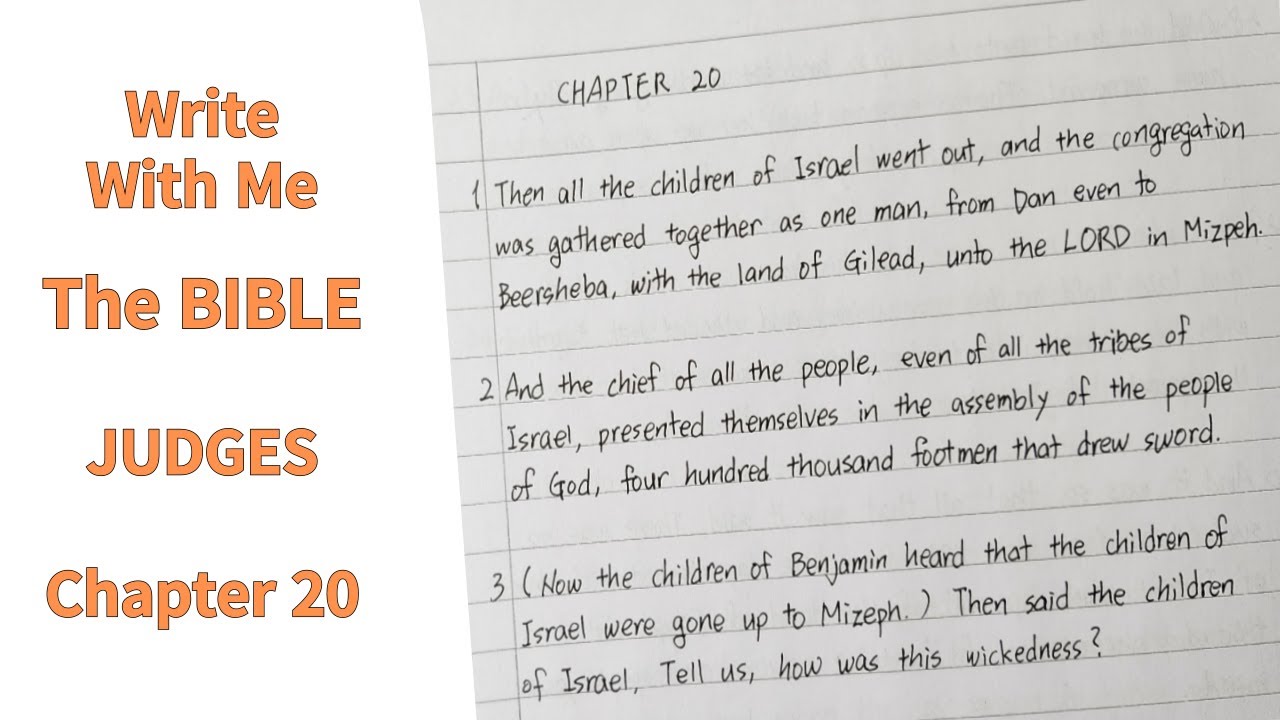 Write
With Me
The BIBLE
JUDGES
Chapter 20
CHAPTER 20
1 Then all the children of Israel went out, and the congregation
was gathered together as one man, from Dan even to
Beersheba, with the land of Gilead, unto the LORD in Mizpeh.
2 And the chief of all the people, even of all the tribes of
Israel, presented themselves in the assembly of the people
of God, four hundred thousand footmen that drew sword.
3 (Now the children of Benjamin heard that the children of
Israel were gone up to Mizeph.) Then said the children
of Israel, Tell us, how was this wickedness?